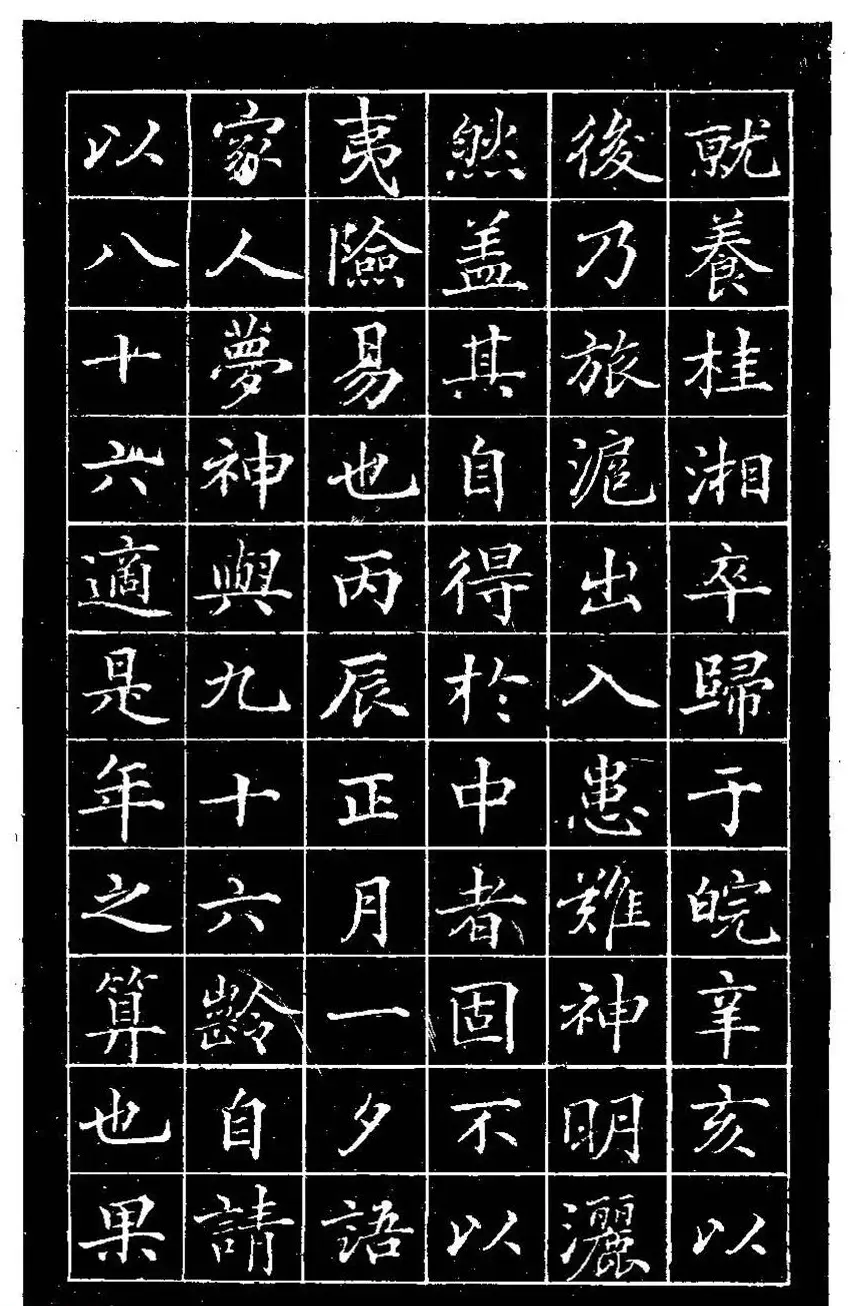 就養桂湘卒歸于皖辛亥以
後乃旅滬出入患難神明灑
然盖其自得於中者固不以
夷險易也丙辰正月一夕語
家人夢神與九十六齡自請
以八十六適是年之算也果